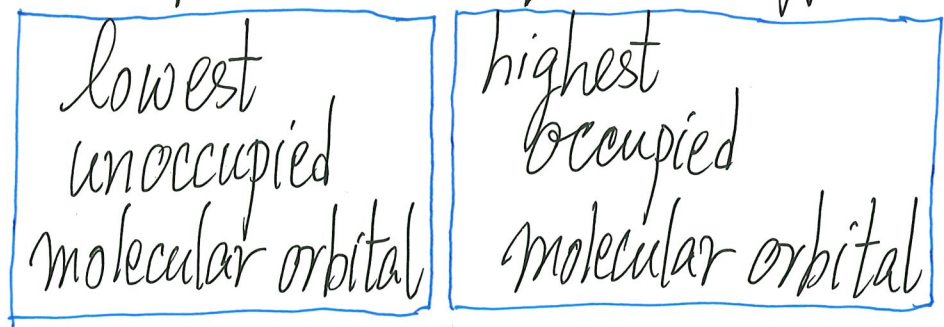 lowest
unoccupied
molecular orbital
highest
occupied
molecular orbital